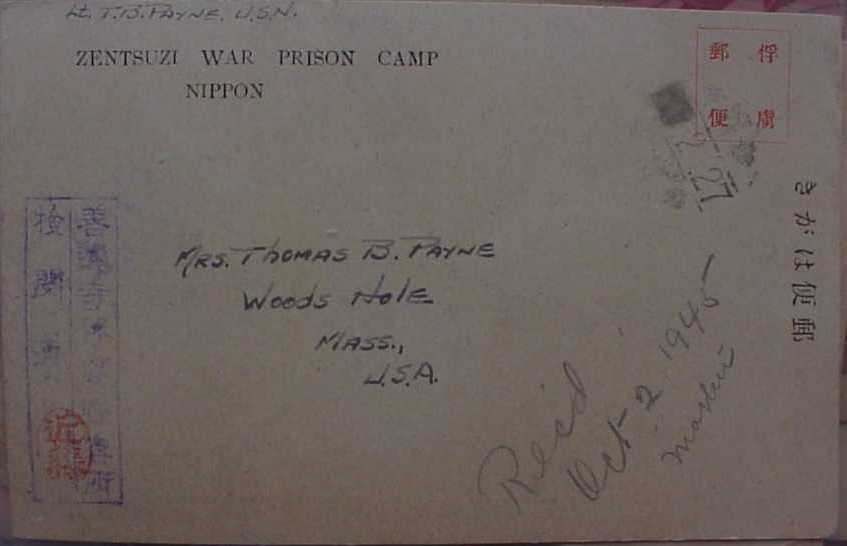 Lt. T.B. PAYNE, U.S.N.
ZENTSUZI WAR PRISON CAMP
NIPPON
俘虜
郵便
2.27
きがは便郵
善通寺俘虜收容所
検閲済
MRS. THOMAS B. PAYNE
WOODS HOLE
MASS.,
U.S.A.
Rec'd
Oct 2 1945